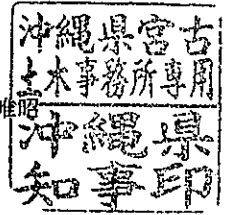 沖縄県宮古
土木事務所専用
唯昭
沖縄県
知事印